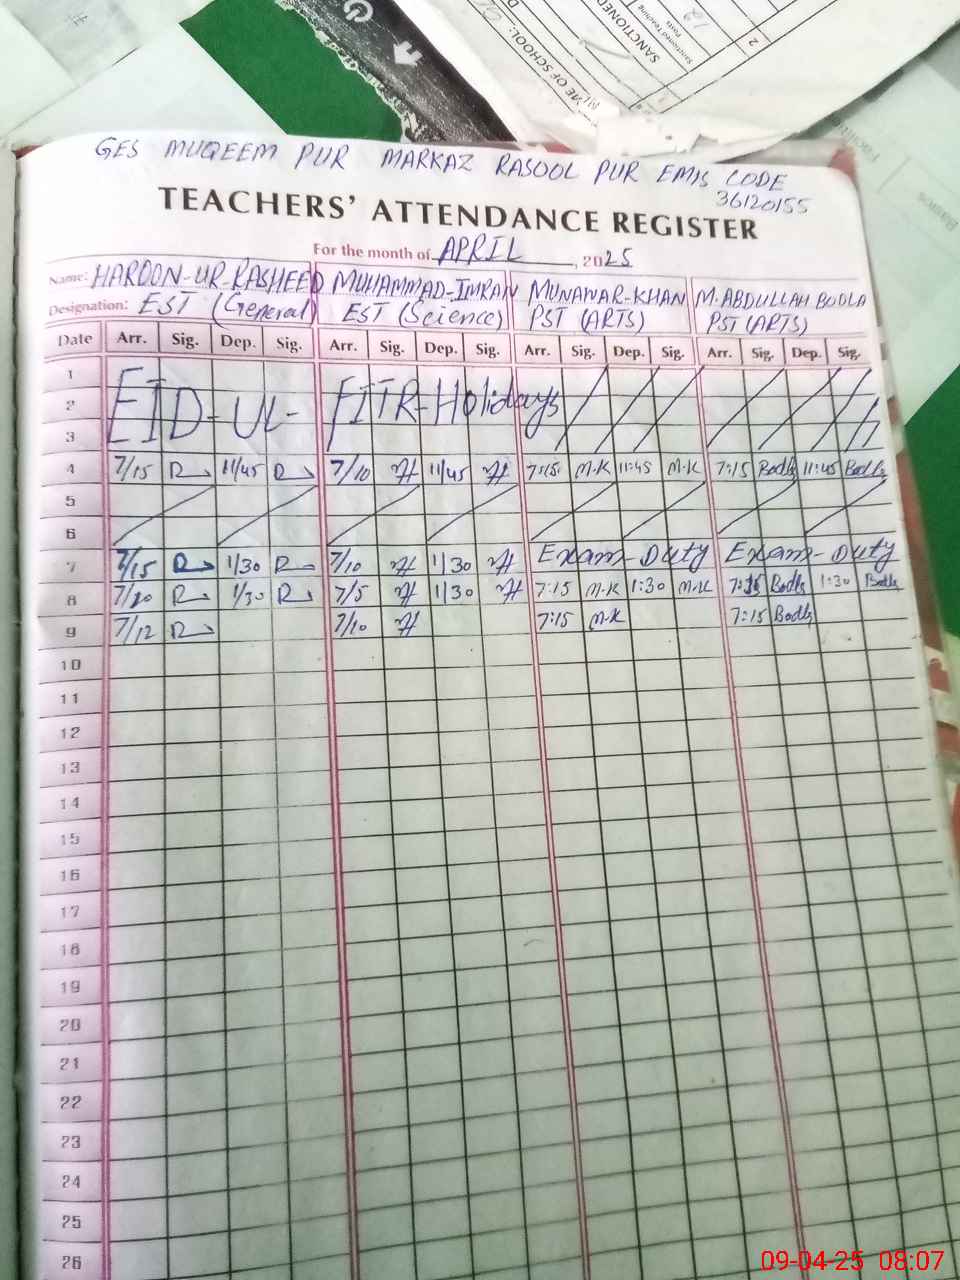 SANCTIONED
Sanctioned Teaching
Posts
2
1
GES MUQEEM PUR MARKAZ RASOOL PUR EMIS CODE
36120155
TEACHERS' ATTENDANCE REGISTER
For the month of APRIL, 2025
Name: HAROON-UR-RASHEED MUHAMMAD-IMRAN MUNAWAR-KHAN M.ABDULLAH BODLA
Designation: EST (General) EST (Science) PST (ARTS) PST (ARTS)
Date Arr. Sig. Dep. Sig. Arr. Sig. Dep. Sig. Arr. Sig. Dep. Sig. Arr. Sig. Dep. Sig.
1
2 EID-UL-FITR-Holidays
3
4 7/15 11/45 7/10 11/45 7:15 M.K 11:45 M.K 7:15 Bodla 11:45 Bodla
5
6
7 7/15 1/30 7/10 1/30 Exam-Duty Exam-Duty
8 7/20 1/30 7/5 1/30 7:15 M.K 1:30 M.K 7:15 Bodla 1:30 Bodla
9 7/12 7/10 7:15 M.K 7:15 Bodla
10
11
12
13
14
15
16
17
18
19
20
21
22
23
24
25
26
09-04-25 08:07